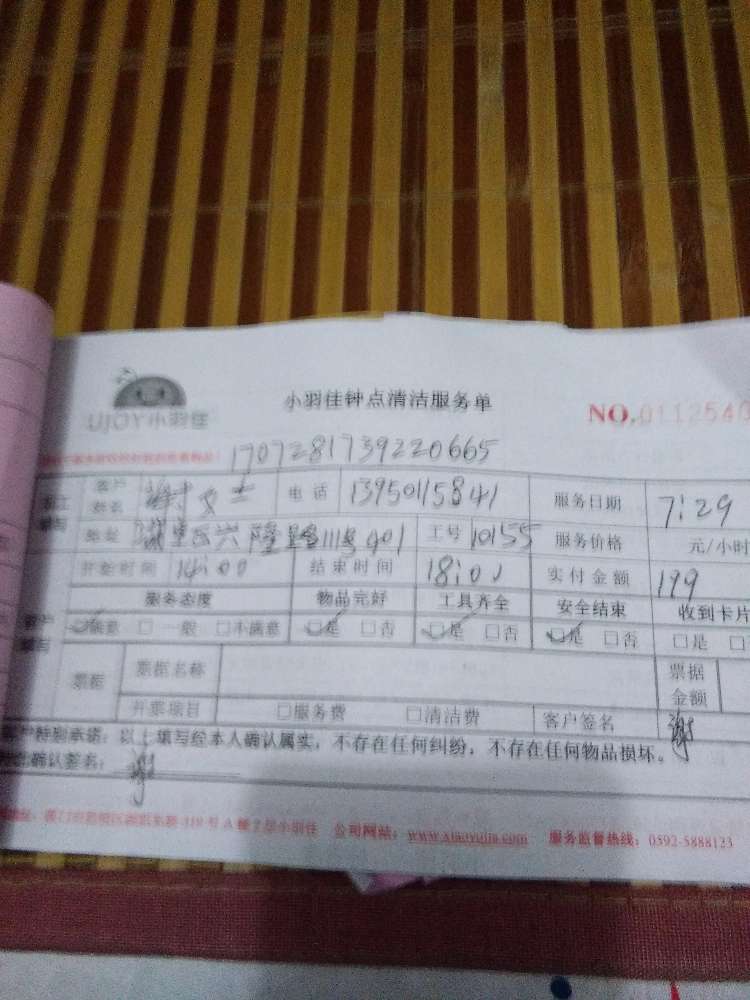 UJOY小羽佳
小羽佳钟点清洁服务单
NO.0112540
1707281739220665
客户姓名 谢女士 电话 13950115841 服务日期 7:29
地址 兴隆路111号401 工号 10155 服务价格 元/小时
开始时间 14:00 结束时间 18:00 实付金额 199
服务态度 物品完好 工具齐全 安全结束 收到卡片
☑满意 □一般 □不满意 ☑是 □否 ☑是 □否 ☑是 □否 □是 □
票据 票据名称 票据金额
开票项目 □服务费 □清洁费 客户签名 谢
客户特别承诺：以上填写经本人确认属实，不存在任何纠纷，不存在任何物品损坏。
确认签名：谢
号A幢2层小羽佳 公司网站：www.xiaoyujia.com 服务监督热线：0592-5888123